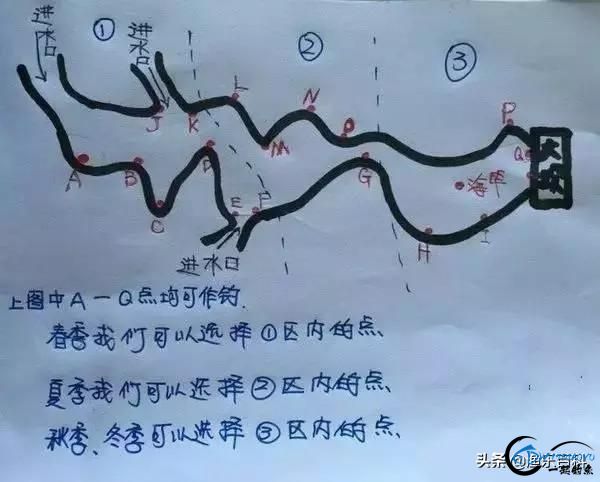 进水口
①
进水口
②
③
L
N
P
J
K
M
O
Q
大坝
A
B
D
G
海竿
C
E
F
H
I
进水口
上图中A一Q点均可作钓.
春季我们可以选择①区内的点、
夏季我们可以选择②区内的点、
秋季、冬季可以选择③区内的点、
头条@渔乐百科
一起钓鱼